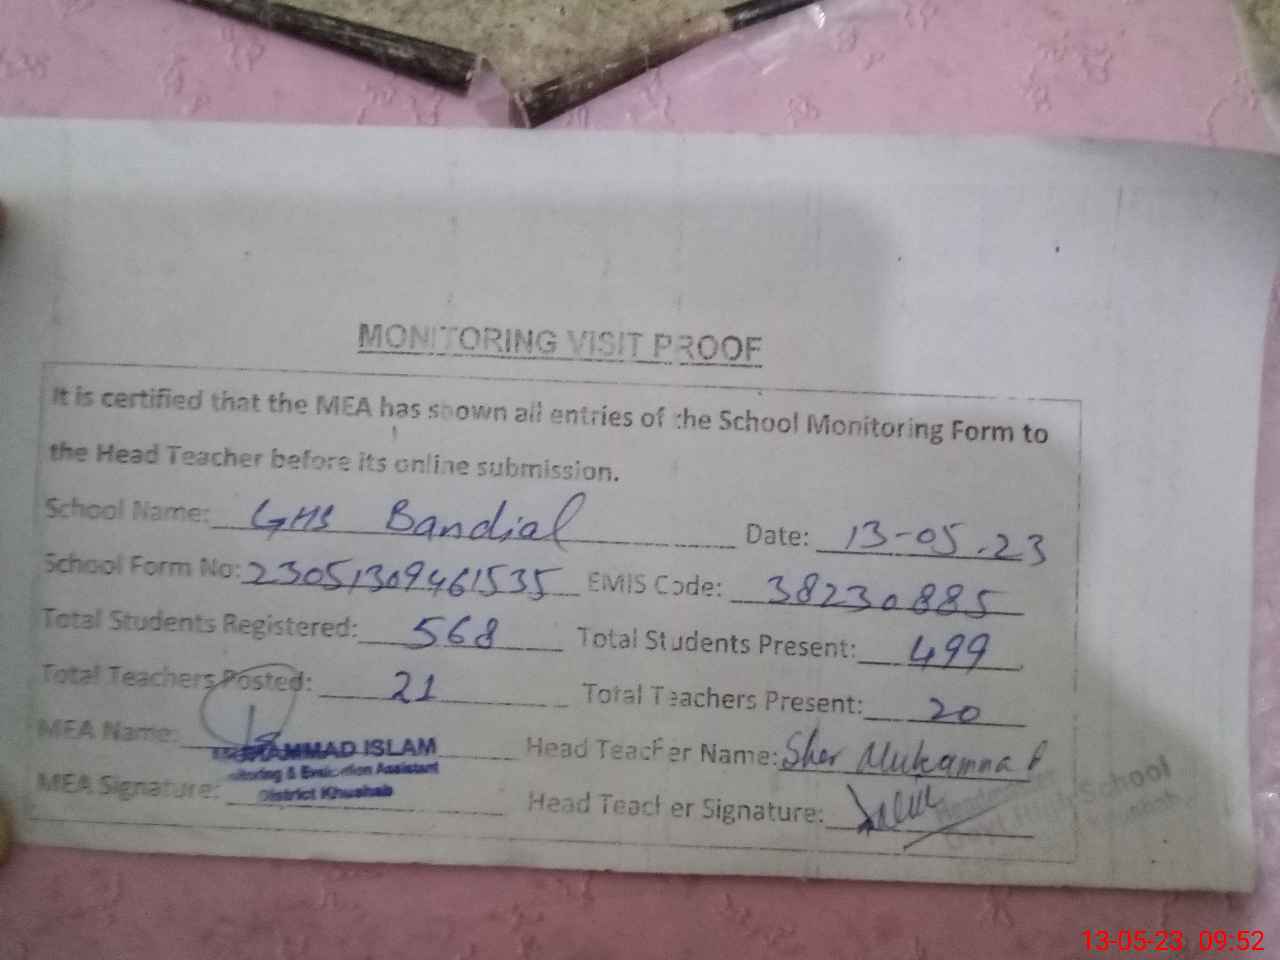 MONITORING VISIT PROOF
It is certified that the MEA has shown all entries of the School Monitoring Form to
the Head Teacher before its online submission.
School Name: GHS Bandial Date: 13-05-23
School Form No: 23051309461535 EMIS Code: 38230885
Total Students Registered: 568 Total Students Present: 499
Total Teachers Posted: 21 Total Teachers Present: 20
MEA Name: MUHAMMAD ISLAM Head Teacher Name: Sher Muhammad
Monitoring & Evaluation Assistant
MEA Signature: District Khushab Head Teacher Signature:
High School
13-05-23 09:52